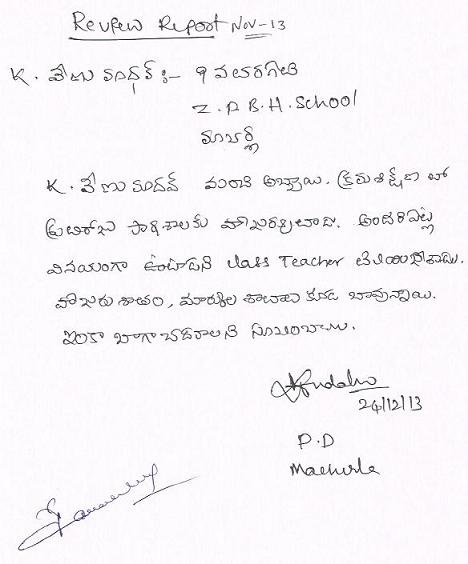 Review Report Nov-13
K. వేణు మాధవ్ :- 9 వ తరగతి
Z.P.B.H. School
మాచర్ల
K. వేణు మాధవ్ మంచి అబ్బాయి. క్రమశిక్షణ తో
ప్రతిరోజు పాఠశాలకు హాజరవుతాడు. అందరిపట్ల
వినయంగా ఉంటాడని Class Teacher తెలియజేశాడు.
హాజరు శాతం, మార్కుల శాతాలు కూడ బావున్నాయి.
ఇంకా బాగా చదవాలని
24/12/13
P.D
Macherla